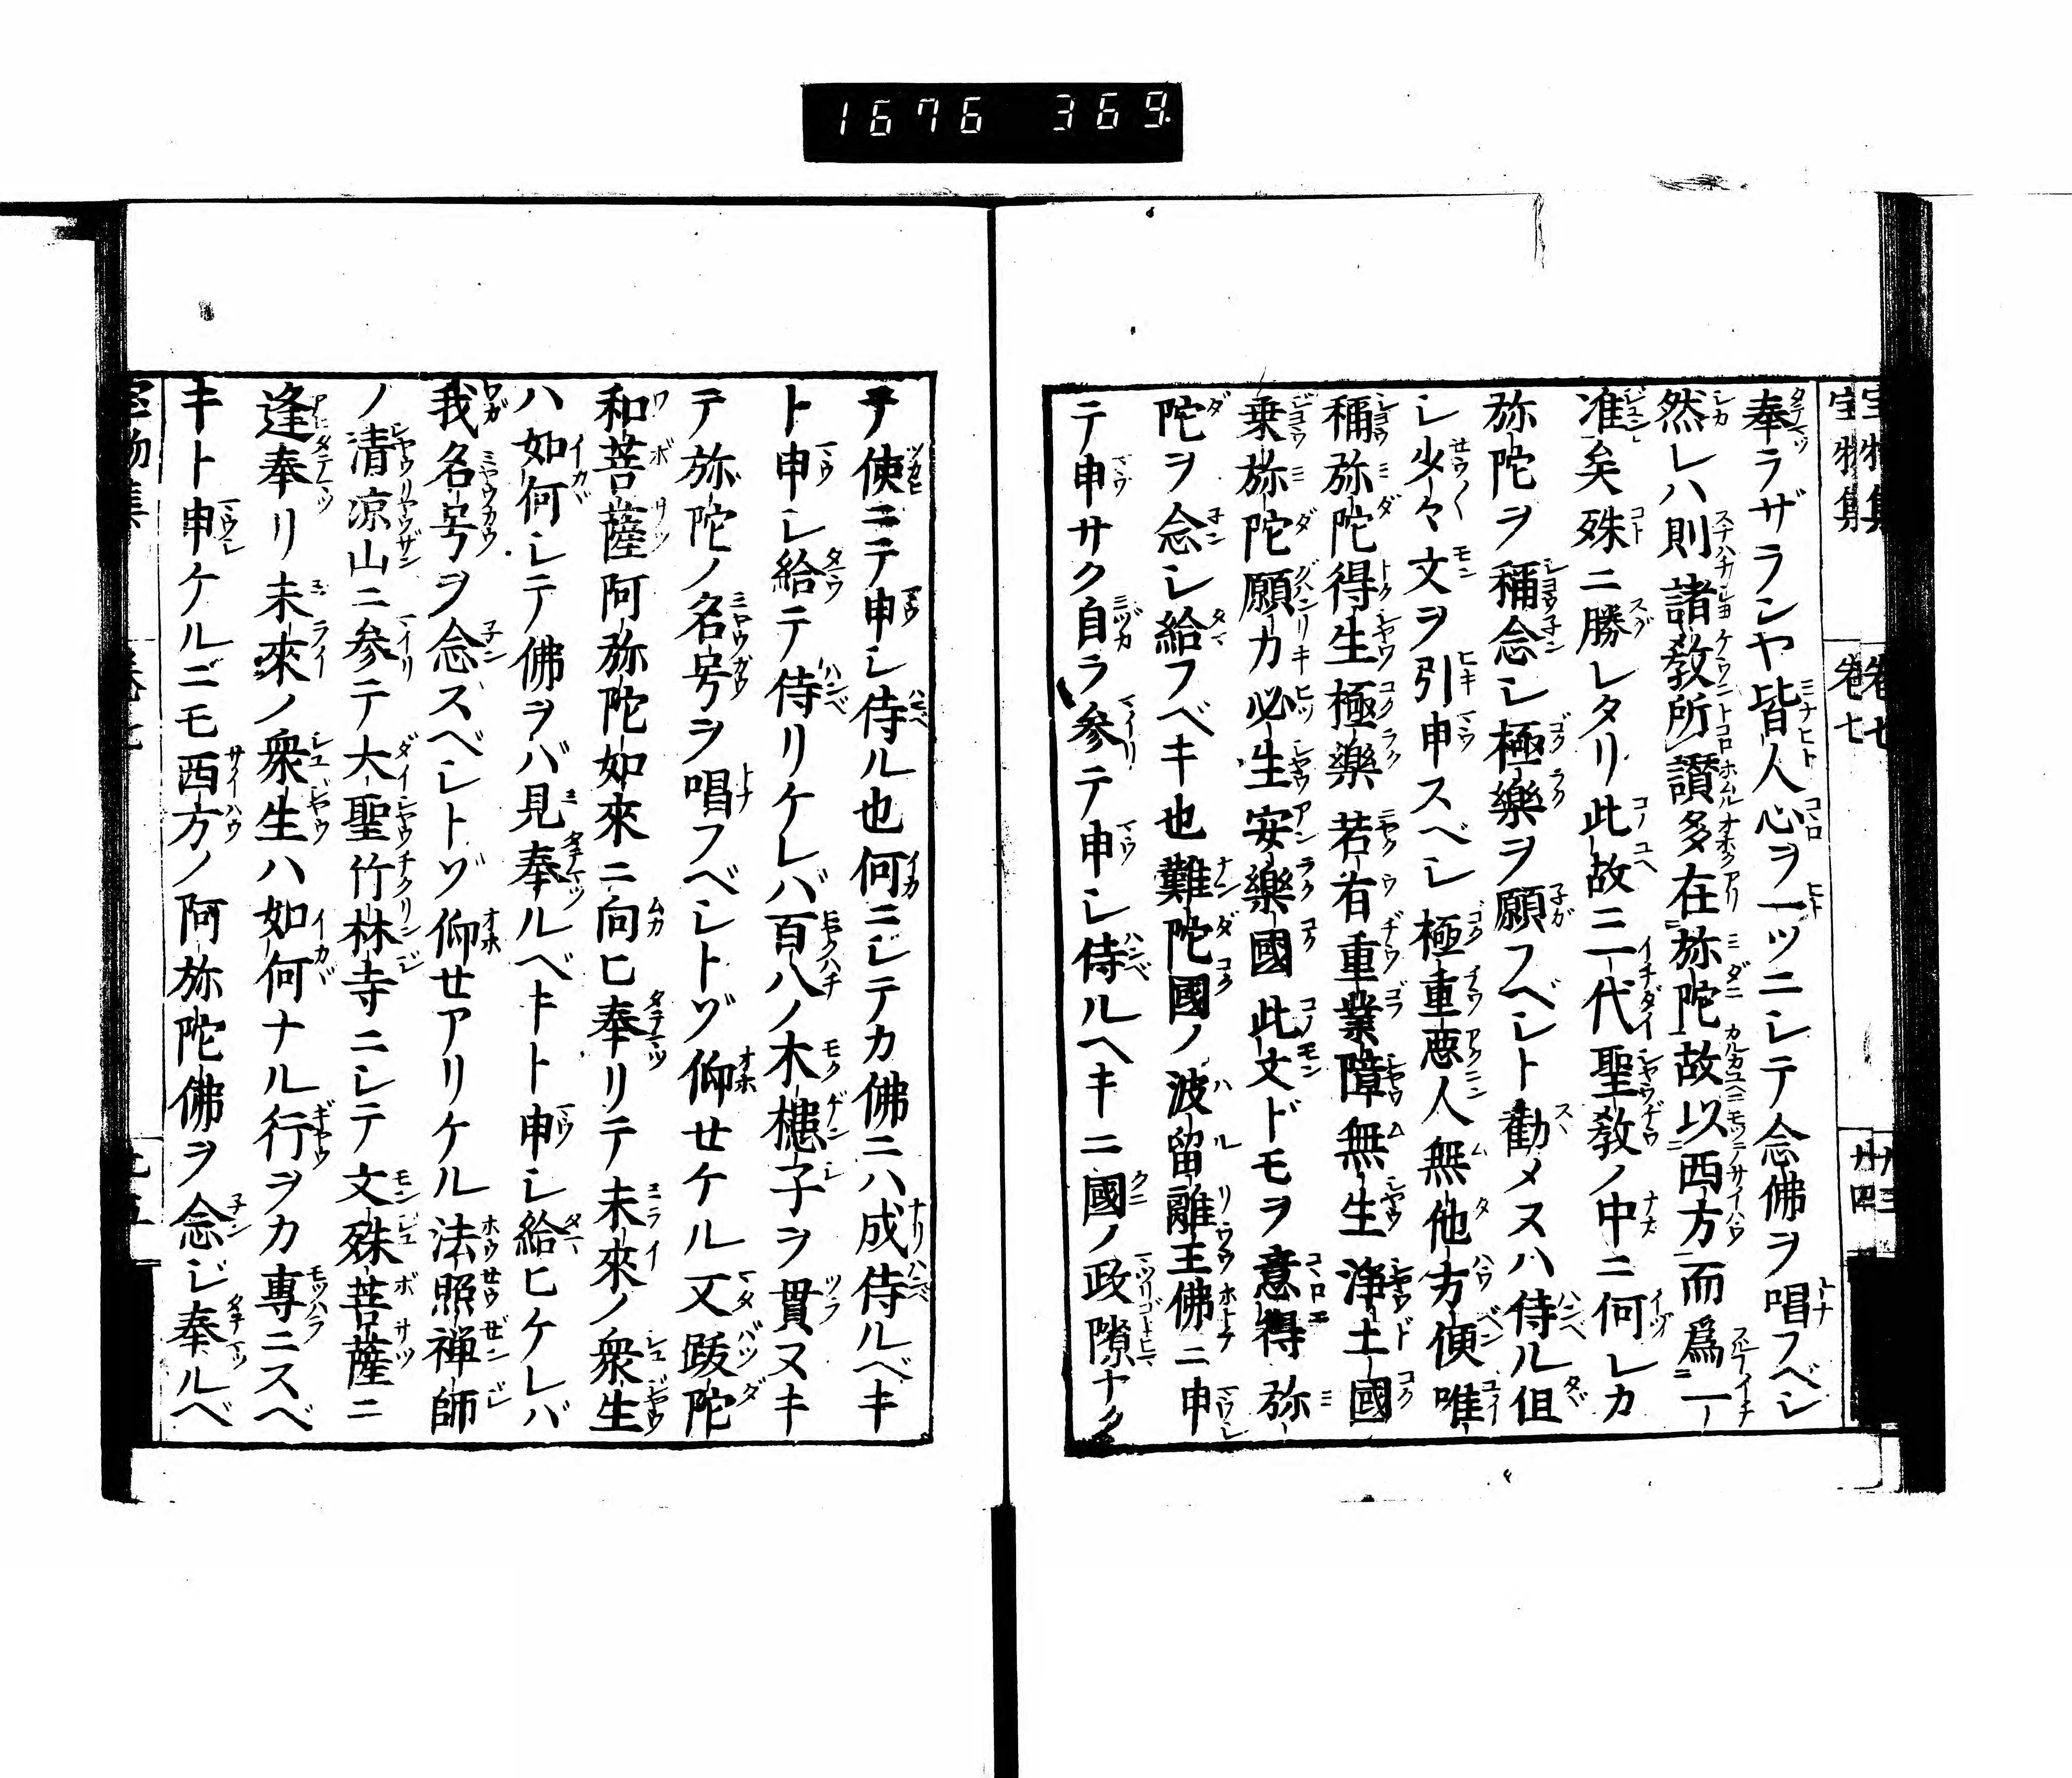 1676 369
宝物集 巻七 廿四
奉ラザランヤ皆人心ヲ一ツニシテ念佛ヲ唱フベシ
然レハ則諸教所讃多在弥陀故以西方而爲一
准矣殊ニ勝レタリ此故ニ一代聖教ノ中ニ何レカ
弥陀ヲ稱念シ極樂ヲ願フベシト勸メヌハ侍ル但
シ少々文ヲ引申スベシ極重悪人無他方便唯
稱弥陀得生極樂若有重業障無生浄土國
乗弥陀願力必生安樂國此文ドモヲ意得弥
陀ヲ念シ給フベキ也難陀國ノ波留離王佛ニ申
テ申サク自ラ参テ申シ侍ルヘキニ國ノ政隙ナク
テ使ニテ申シ侍ル也何ニシテカ佛ニハ成侍ルベキ
ト申シ給テ侍リケレバ百八ノ木槵子ヲ貫ヌキ
テ弥陀ノ名号ヲ唱フベシトヅ仰せケル又跋陀
和菩薩阿弥陀如來ニ向ヒ奉リテ未來ノ衆生
ハ如何シテ佛ヲバ見奉ルベキト申シ給ヒケレバ
我名号ヲ念ズベシトヅ仰せアリケル法照禅師
ノ清凉山ニ参テ大聖竹林寺ニシテ文殊菩薩ニ
逢奉リ未來ノ衆生ハ如何ナル行ヲカ専ニスベ
キト申ケルニモ西方ノ阿弥陀佛ヲ念ジ奉ルベ